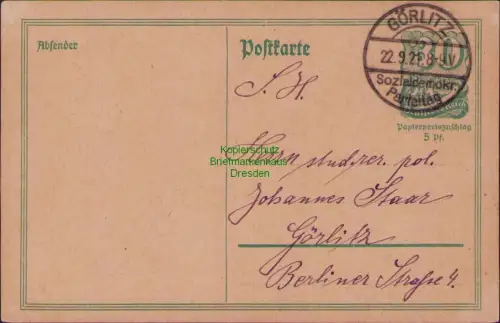 Absender
Postkarte
GÖRLITZ
22.9.21.8-9V
Sozialdemokr.
Parteitag
30
Papierpreiszuschlag
5 Pf.
S. H.
Herrn stud. rer. pol.
Johannes Staar
Görlitz
Berliner Straße 4.
Kopierschutz
Briefmarkenhaus
Dresden